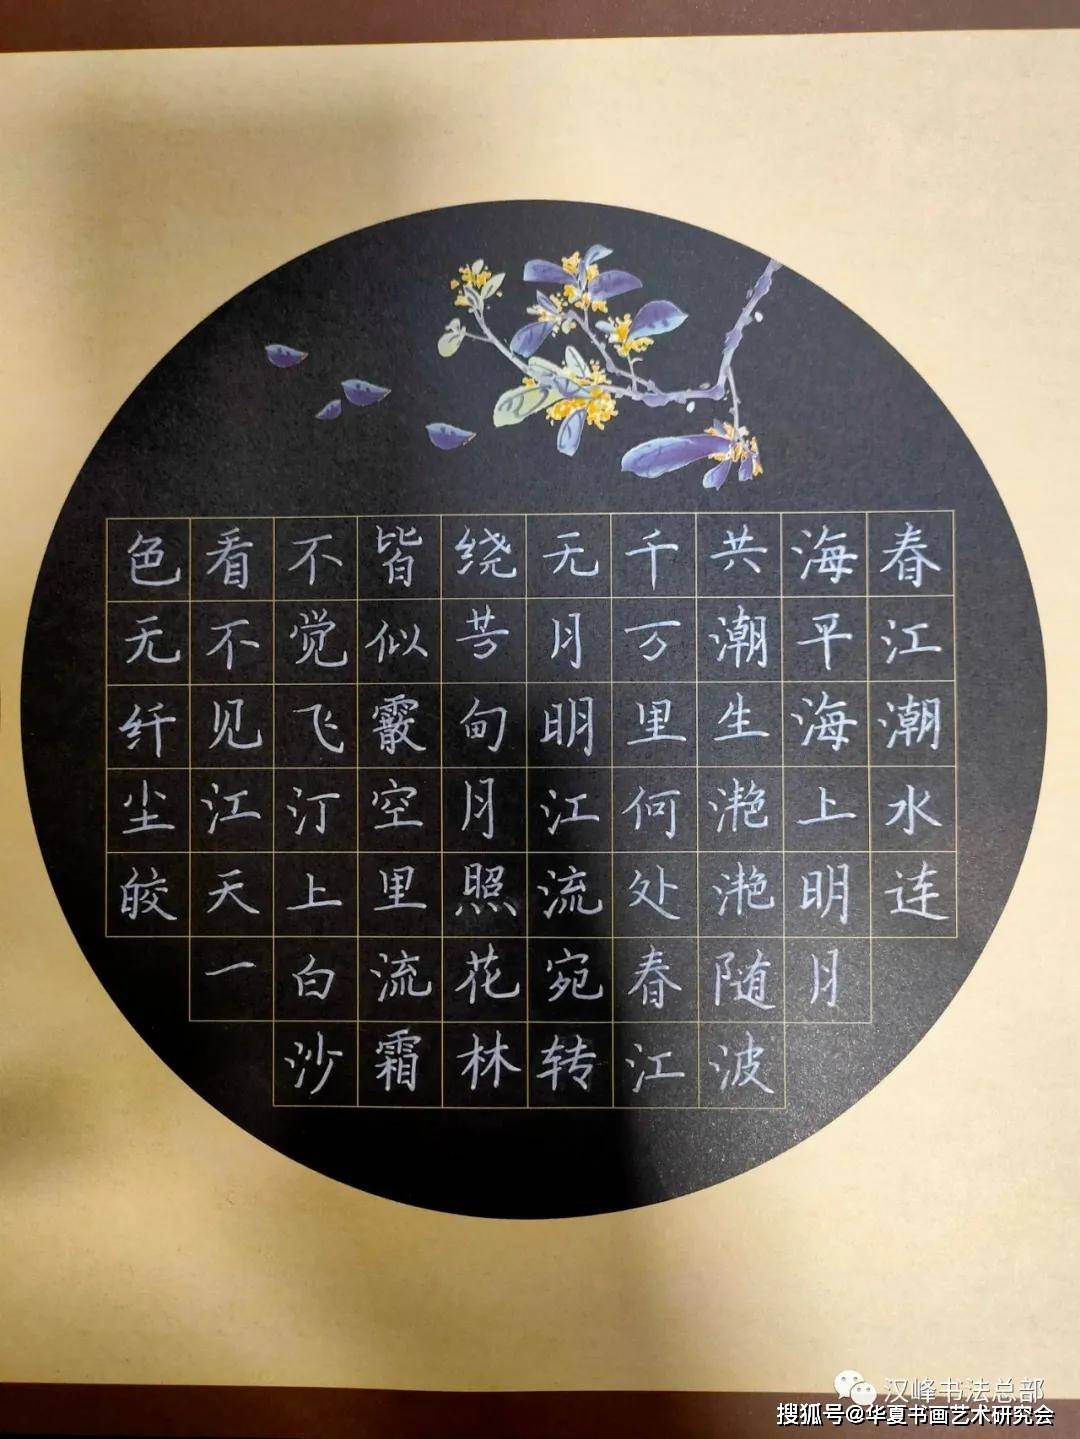 春江潮水连
海平海上明月
共潮生滟滟随波
千万里何处春江
无月明江流宛转
绕芳甸月照花林
皆似霰空里流霜
不觉飞汀上白沙
看不见江天一
色无纤尘皎
汉峰书法总部
搜狐号@华夏书画艺术研究会